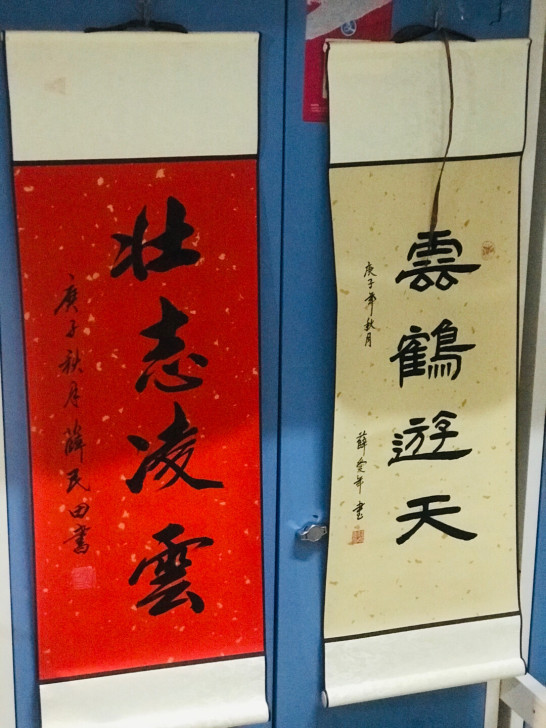 壮志凌雲
庚子秋月薛民田書
雲鶴遊天
庚子年秋月
薛愛年書